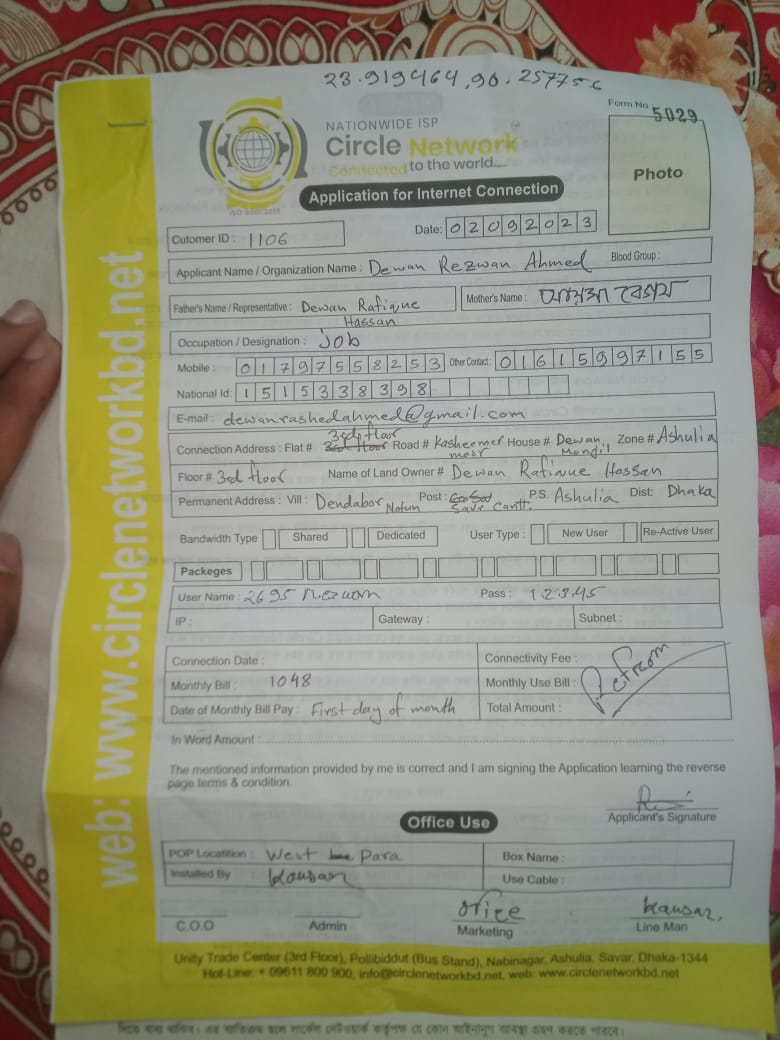 23.919464, 90.257756
Form No 5029
NATIONWIDE ISP
Circle Network
Connected to the world.....
ISO 9001:2015
Photo
Application for Internet Connection
Cutomer ID : 1106
Date: 02092023
Applicant Name / Organization Name : Dewan Rezwan Ahmed Blood Group :
Father's Name / Representative : Dewan Rafique Hassan
Mother's Name :
Occupation / Designation : job
Mobile : 01797558253 Other Contact : 01615997155
National Id: 1515338398
E-mail : dewanrashedahmed@gmail.com
Connection Address : Flat # 3rd floor Road # Kasheemer moor House # Dewan Monjil Zone # Ashulia
Floor # 3rd floor Name of Land Owner # Dewan Rafique Hassan
Permanent Address : Vill : Dendabor Notun Post : Savr Cantt. P.S. Ashulia Dist: Dhaka
Bandwidth Type Shared Dedicated User Type : New User Re-Active User
Packeges
User Name : 2695 Rezwan Pass : 12345
IP : Gateway : Subnet :
Connection Date : Connectivity Fee :
Monthly Bill : 1048 Monthly Use Bill :
Date of Monthly Bill Pay : First day of month Total Amount :
In Word Amount :
The mentioned information provided by me is correct and I am signing the Application learning the reverse
page terms & condition.
Applicant's Signature
Office Use
POP Locatition : West Para Box Name :
Installed By : Kousar Use Cable :
C.O.O Admin office Marketing Kausar, Line Man
Unity Trade Center (3rd Floor), Pollibiddut (Bus Stand), Nabinagar, Ashulia, Savar, Dhaka-1344
Hot-Line: + 09611 800 900, info@circlenetworkbd.net, web: www.circlenetworkbd.net
web: www.circlenetworkbd.net